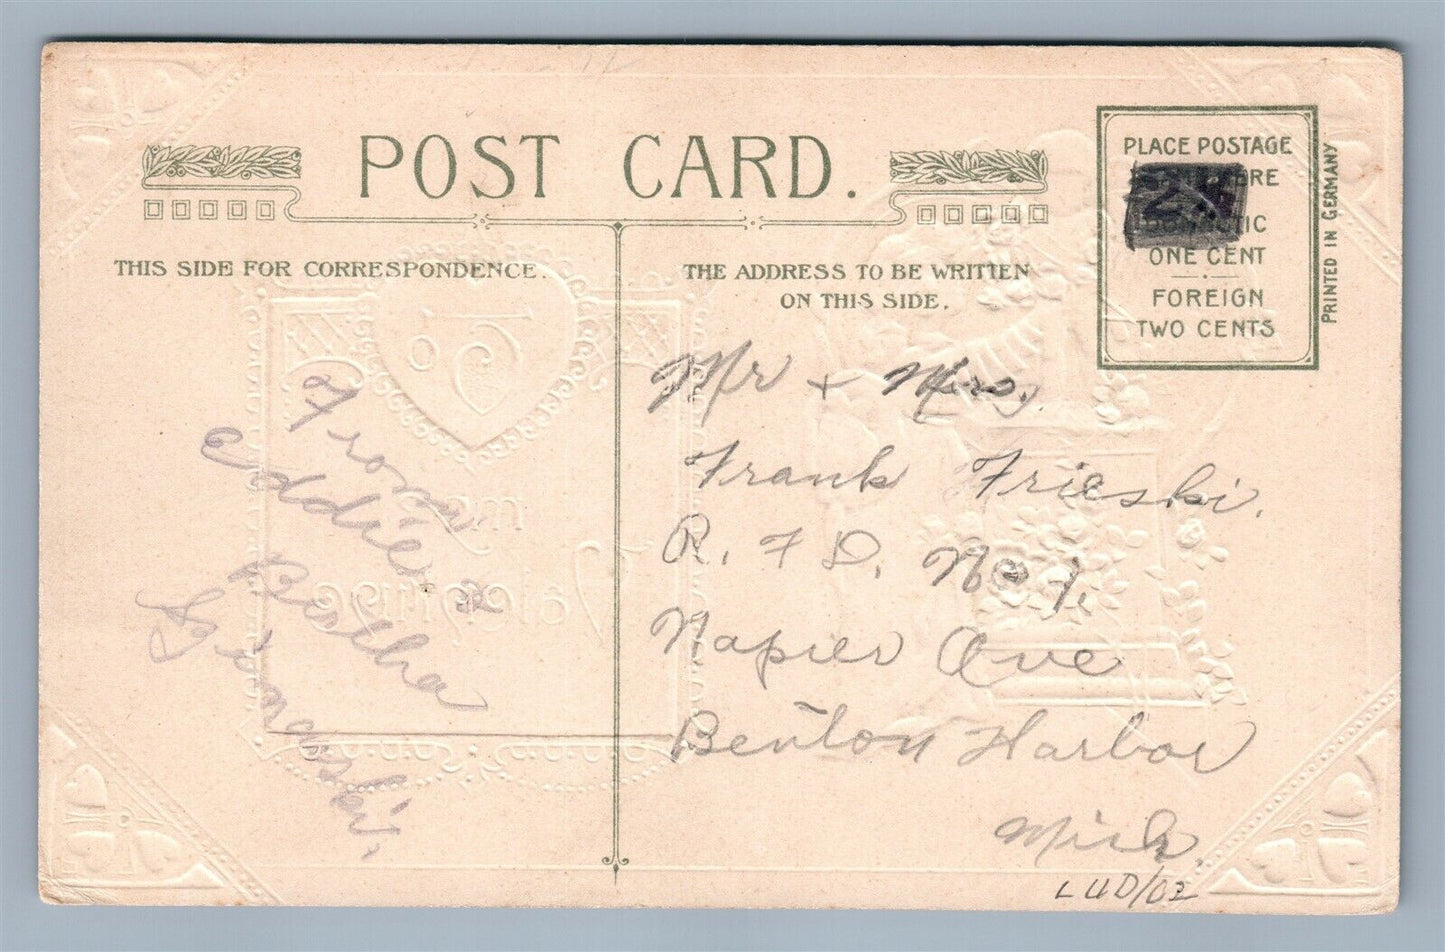 POST CARD.
THIS SIDE FOR CORRESPONDENCE.
THE ADDRESS TO BE WRITTEN
ON THIS SIDE.
PLACE POSTAGE
ONE CENT
FOREIGN
TWO CENTS
PRINTED IN GERMANY
From
Eddie &
Bertha
Sinarski.
To
my
Valentine
Mr + Mrs.
Frank Frieski.
R. F D. No 1.
Napier Ave
Benton Harbor
Mich.
LUD/02